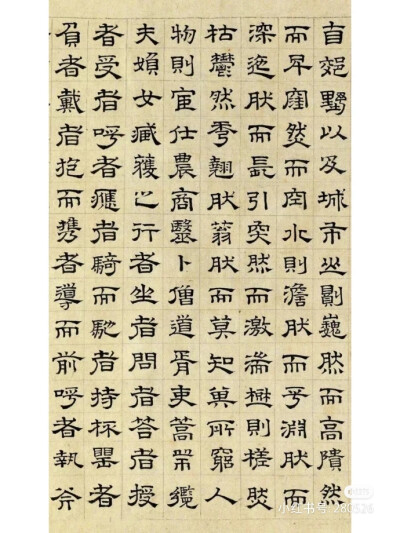 自郊野以及城市山則巍然而高隤然
而卑窪然而空水則澹然而平淵然而
深迤然而長引突然而激湍樹則槎然
枯鬱然秀翹然蓊然而莫知其所窮人
物則官仕農商醫卜僧道胥吏篙師纜
夫婦女臧獲之行者坐者問者答者授
者受者呼者應者騎而馳者持杯罌者
負者戴者抱而攜者導而前呼者執斧
小红书号: